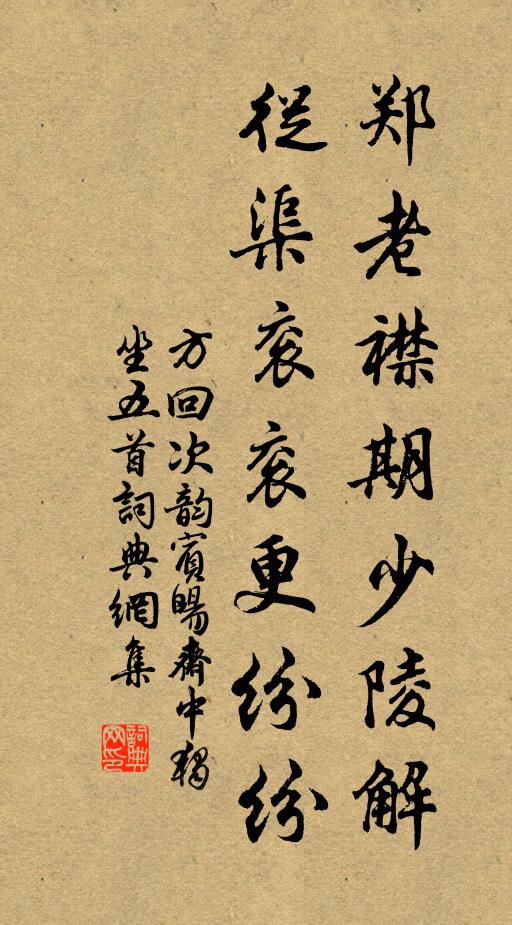 郑老襟期少陵解
從渠衮衮更纷纷
方回次韵賓暘齋中獨
坐五首詞典網集
詞典网印